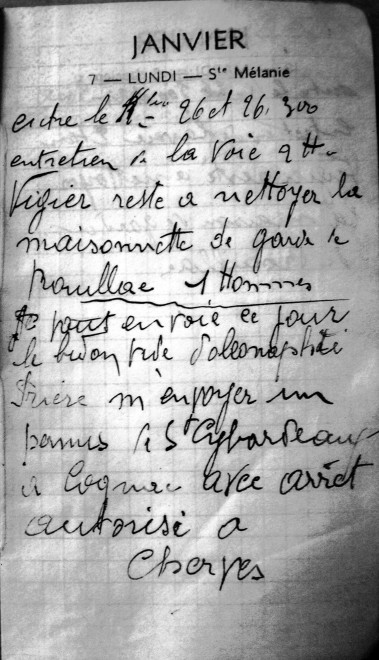 JANVIER
7 — LUNDI — Ste Mélanie
entre le Klm 26 et 26.300
entretien de la voie 2 H.
Vigier reste a nettoyer la
maisonnette de garde de
Rouillac 1 Hommes
envoie ce jour
le bidon vide d'oleonaphte
Prière m'envoyer un
permis de St Cybardeaux
a Cognac avec arrêt
autorisé a
Cherves